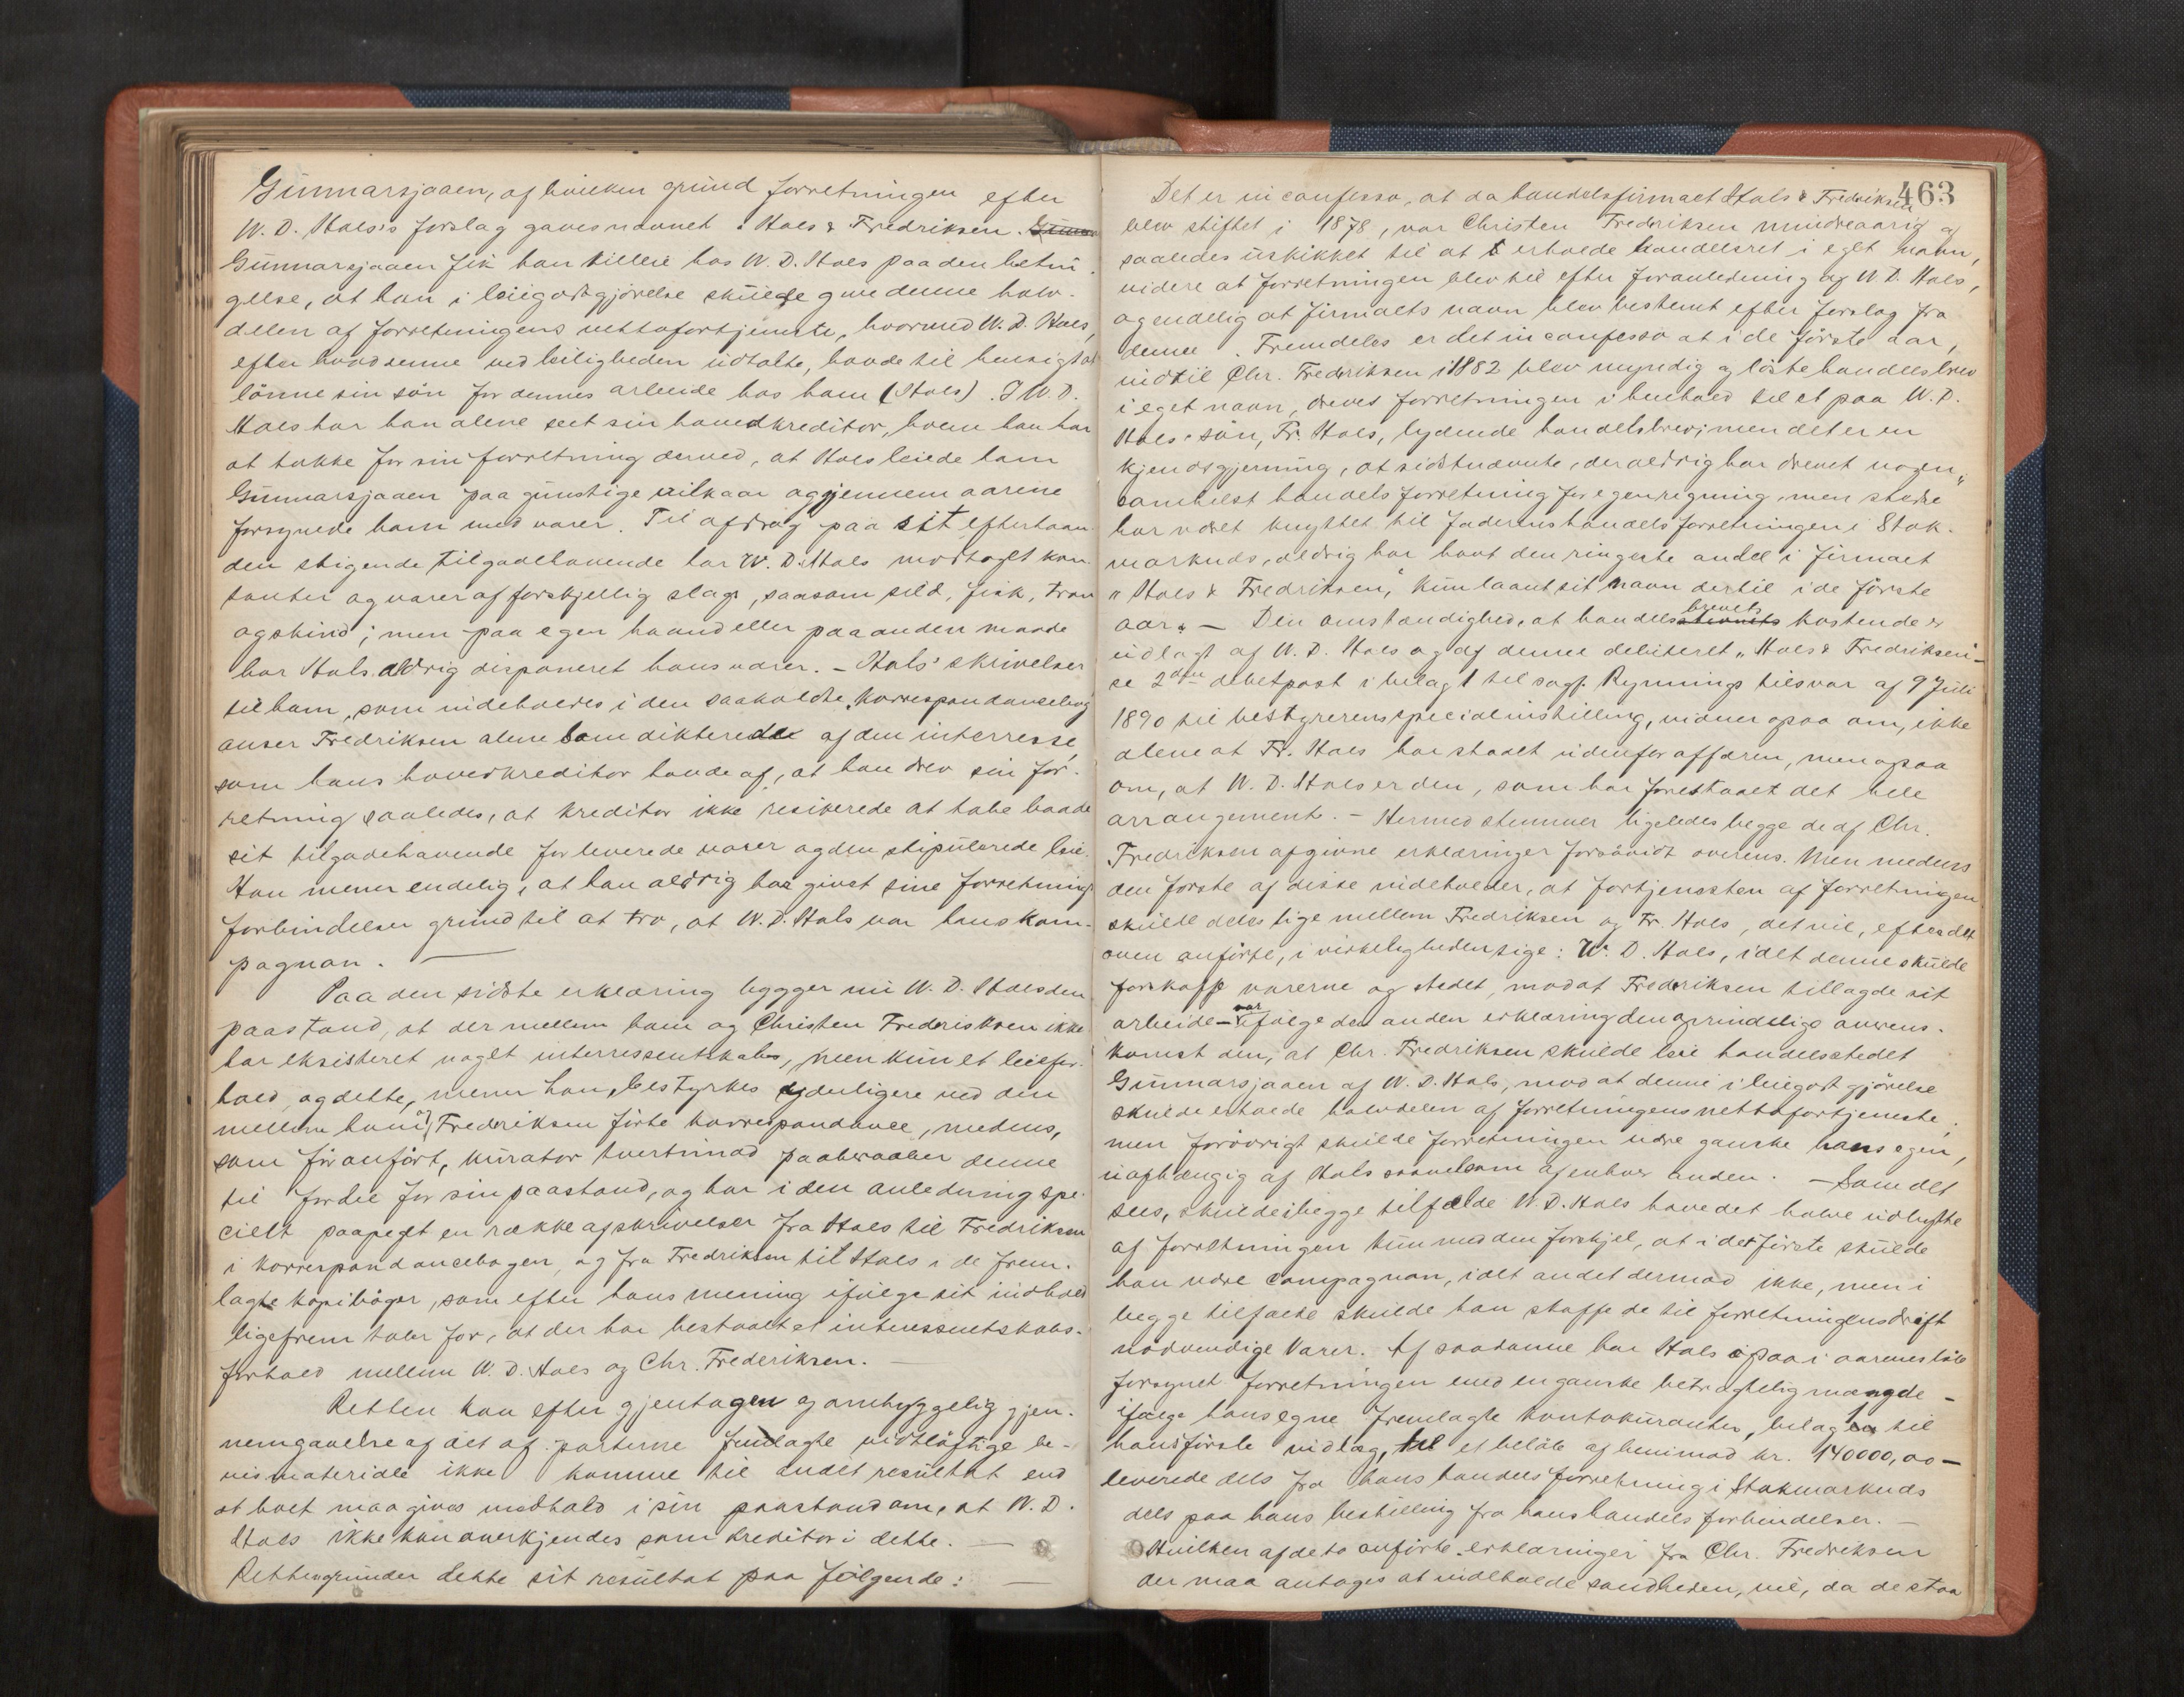 Gunnarsjaaen, af hvilken grund forretningen efter
W. D. Hals's forslag gaves navnet: Hals & Fredriksen.
Gunnarsjaaen fik han tilleie hos W. D. Hals paa den betin-
gelse, at han i leiegodtgjörelse skulde give denne halv-
delen af forretningens nettofortjeneste, hvormed W. D. Hals,
efter hvad denne ved leiligheden udtalte, havde til hensigt at
lönne sin sön for dennes arbeide hos ham (Hals). I W. D.
Hals har han alene seet sin hovedkreditor, hvem han har
at takke for sin forretning derved, at Hals leiede ham
Gunnarsjaaen paa gunstige vilkaar og gjennem aarene
forsynede ham med varer. Til afdrag paa sit efterhaan-
den stigende tilgodehavende har W. D. Hals modtaget kon-
tanter og varer af forskjellig slags, saasom sild, fisk, tran
og skind; men paa egen haand eller paa anden maade
har Hals aldrig disponeret hans varer. – Hals' skrivelser
til ham, som indeholdes i den saakaldte "korrespondancebog
anser Fredriksen alene som dikterede af den interresse,
som hans hovedkreditor havde af, at han drev sin for-
retning saaledes, at kreditor ikke resikerede at tabe baade
sit tilgodehavende for leverede varer og den stipulerede leie.
Han mener endelig, at han aldrig har givet sine forretnings
forbindelser grund til at tro, at W. D. Hals var hans kom-
pagnon. —
Paa den sidste erklæring bygger nu W. D. Hals den
paastand, at der mellem ham og Christen Frederiksen ikke
har eksisteret noget interressentskab, men kun et leiefor-
hold, og dette, mener han, bestyrkes yderligere ved den
mellem ham og Fredriksen förte korrespondance, medens,
som för anfört, kurator tvertimod paaberaaber denne
til fordel for sin paastand, og har i den anledning spe-
cielt paapeget en række af skrivelser fra Hals til Fredriksen
i korrespondancebogen, og fra Fredriksen til Hals i de frem-
lagte kopiböger, som efter hans mening ifölge sit indhold
ligefrem taler for, at der har bestaaet et interessentskabs-
forhold mellem W. D. Hals og Chr. Frederiksen. —
Retten kan efter gjentagen og omhyggelig gjen-
nemgaaelse af det af parterne fremlagte vidtlöftige be-
vismateriale ikke komme til andet resultat end
at boet maa gives medhold i sin paastand om, at W. D.
Hals ikke kan anerkjendes som kreditor i dette. —
Retten grunder dette sit resultat paa fölgende: —
463
Det er in confesso, at da handelsfirmaet Hals & Fredriksen
blev stiftet i 1878, var Christen Fredriksen mindreaarig og
saaledes uskikket til at erholde handelsret i eget navn,
videre at forretningen blev til efter foranledning af W. D. Hals,
og endelig at firmaets navn blev bestemt efter forslag fra
denne. Fremdeles er det in confesso at i de förste aar,
indtil Chr. Fredriksen i 1882 blev myndig og löste handelsbrev
i eget navn, dreves forretningen i henhold til et paa W. D.
Hals' sön, Fr. Hals, lydende handelsbrev; men det er en
kjendsgjerning, at sidstnævnte, der aldrig har drevet nogen-
somhelst handelsforretning for egen regning, men stedse
har været knyttet til faderens handelsforretningen i Stok-
marknæs, aldrig har havt den ringeste andel i firmaet
"Hals & Fredriksen," kun laant sit navn dertil i de förste
aar. — Den omstændighed, at handelsbrevets kostende er
udlagt af W. D. Hals og af denne debiteret "Hals & Fredriksen –
se 2den debetpost i bilag 1 til sagf. Rynnings tilsvar af 9 Juli
1890 til bestyrerens specialinstilling, vidner ogsaa om, ikke
alene at Fr. Hals har staaet udenfor affæren, men ogsaa
om, at W. D. Hals er den, som har forestaaet det hele
arrangement. – Hermed stemmer ligeledes begge de af Chr.
Fredriksen afgivne erklæringer forsaavidt overens. Men medens
den förste af disse indeholder, at fortjenesten af forretningen
skulde deles lige mellem Fredriksen og Fr. Hals, det vil, efter det
oven anförte, i virkeligheden sige: W. D. Hals, idet denne skulde
forskaffe varerne og stedet, mod at Fredriksen tillagde sit
arbeide – var ifölge den anden erklæring den oprindelige overens-
komst den, at Chr. Fredriksen skulde leie handelsstedet
Gunnarsjaaen af W. D. Hals, mod at denne i leiegodtgjörelse
skulde erholde halvdelen af forretningens nettofortjeneste;
men forövrigt skulde forretningen være ganske hans egen,
uafhængig af Hals saavelsom af enhver anden. – Som det
sees, skulde i begge tilfælde W. D. Hals have det halve udbytte
af forretningen kun med den forskjel, at i det förste skulde
han være compagnon, i det andet dermod ikke, men i
begge tilfælde skulde han skaffe de til forretningens drift
nödvendige varer. Af saadanne har Hals ogsaa i aarenes löb
forsynet forretningen med en ganske betragtelig mængde –
ifölge hans egne fremlagte kontokuranter, bilagen til
hans förste indlæg, til et belöb af henimod kr. 140000,00 –
leverede dels fra hans handelsforretning i Stokmarknæs
dels paa hans bestilling fra hans handelsforbindelser. —
Hvilken af de to anförte erklæringer fra Chr. Fredriksen
der maa antages at indeholde sandheden, vil, da de staa